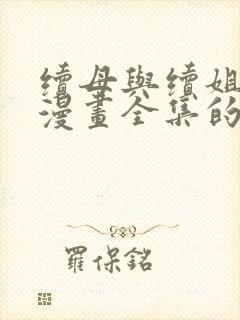 續母與續姐
漫畫全集的
羅保銘